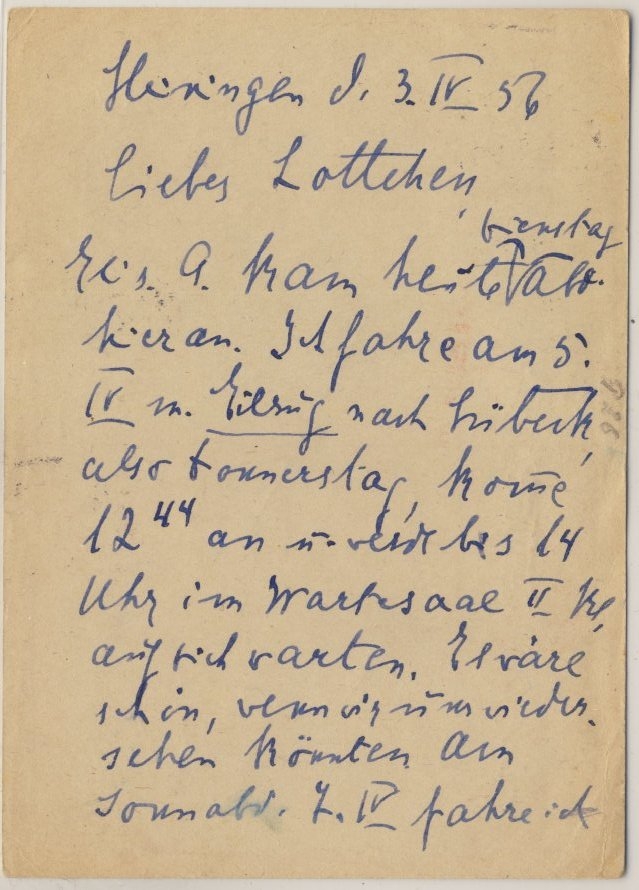 d. 3. IV 56
Liebes Lottchen,
Dienstag
kam heute Abd.
hier an. Ich fahre am 5.
IV m. Eilzug nach Lübeck,
also Donnerstag, kom̄e
12⁴⁴ an u. werde bis 14
Uhr im Wartesaal II Kl,
auf Dich warten. Es wäre
schön, wenn wir uns wieder-
sehen könnten. Am
Sonnabd. 7. IV fahre ich